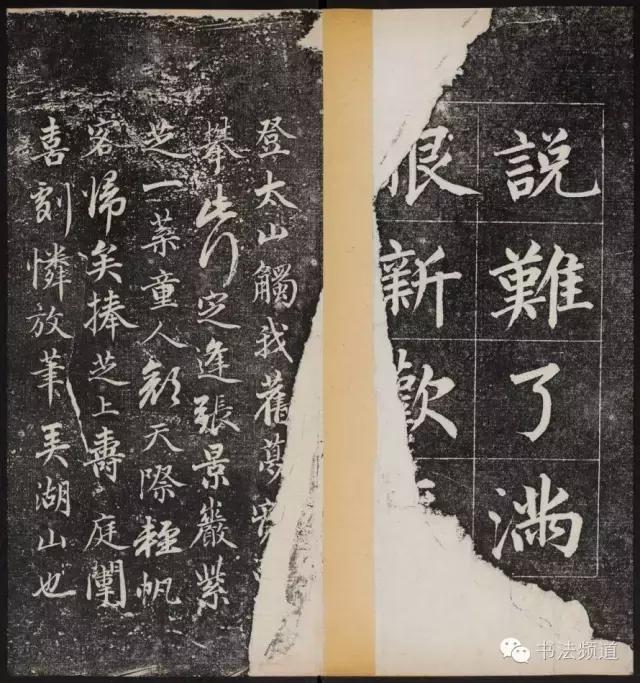 說難了滿
眼新歡
登太山觸我舊夢
攀此行定逢張景巖紫
芝一葉童人天際輕帆
客歸矣捧芝上壽庭闈
喜劇憐放筆美湖山也
书法频道